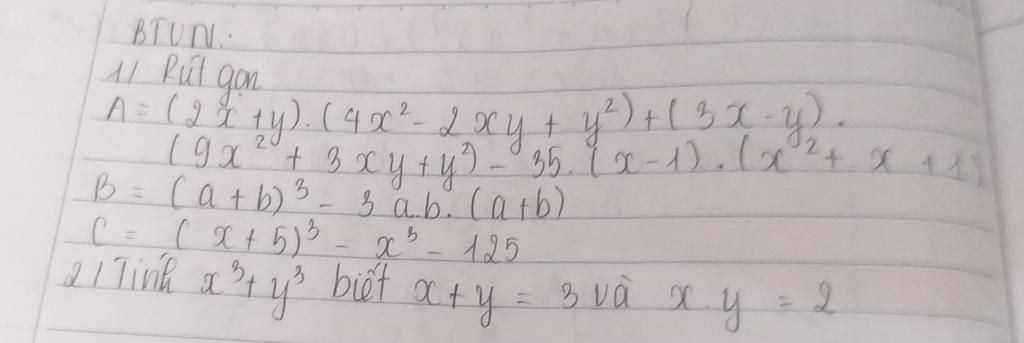 BTVN.
1/ Rút gọn
A = (2x + y).(4x² - 2xy + y²) + (3x - y).
(9x² + 3xy + y²) - 35.(x - 1).(x² + x + 1)
B = (a + b)³ - 3a.b.(a + b)
C = (x + 5)³ - x³ - 125
2/ Tính x³ + y³ biết x + y = 3 và x.y = 2